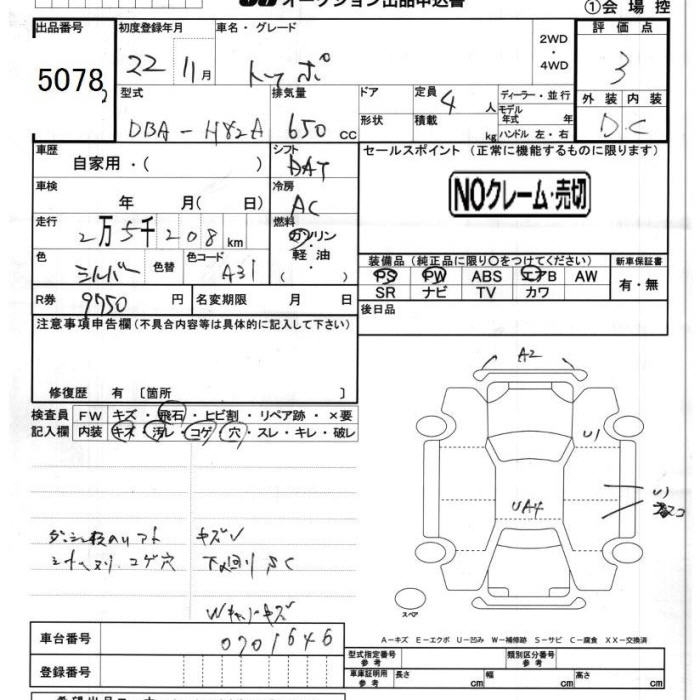 オークション出品申込書
①会場控
出品番号
初度登録年月
車名・グレード
2WD
・
4WD
評価点
5078
22 11月
トッポ
3
型式
排気量
ドア
定員
4人
ディーラー・並行
モデル
年式 年
外装 内装
DBA-H82A
650 cc
形状
積載
kg
ハンドル 左・右
D C
車歴
自家用・( )
シフト
DAT
セールスポイント (正常に機能するものに限ります)
車検
年 月( 日)
冷房
AC
NOクレーム・売切
走行
2万5千208km
燃料
ガソリン
・
軽油
( )
色
シルバー
色替
色コード
A31
装備品(純正品に限り〇をつけてください)
新車保証書
PS PW ABS エアB AW
SR ナビ TV カワ
有・無
R券
9750円
名変期限 月 日
後日品
注意事項申告欄(不具合内容等は具体的に記入して下さい)
修復歴 有 〔箇所 〕
検査員
記入欄
FW キズ・飛石・ヒビ割・リペア跡・×要
内装 キズ・汚レ・コゲ・穴・スレ・キレ・破レ
A2
U1
UA4
キズ
コゲ穴
下廻りSC
スペア
A-キズ E-エクボ U-凹み W-補修跡 S-サビ C-腐食 XX-交換済
車台番号
0701646
型式指定番号
参考
類別区分番号
参考
登録番号
車庫証明用
参考
長さ cm
幅 cm
高さ cm